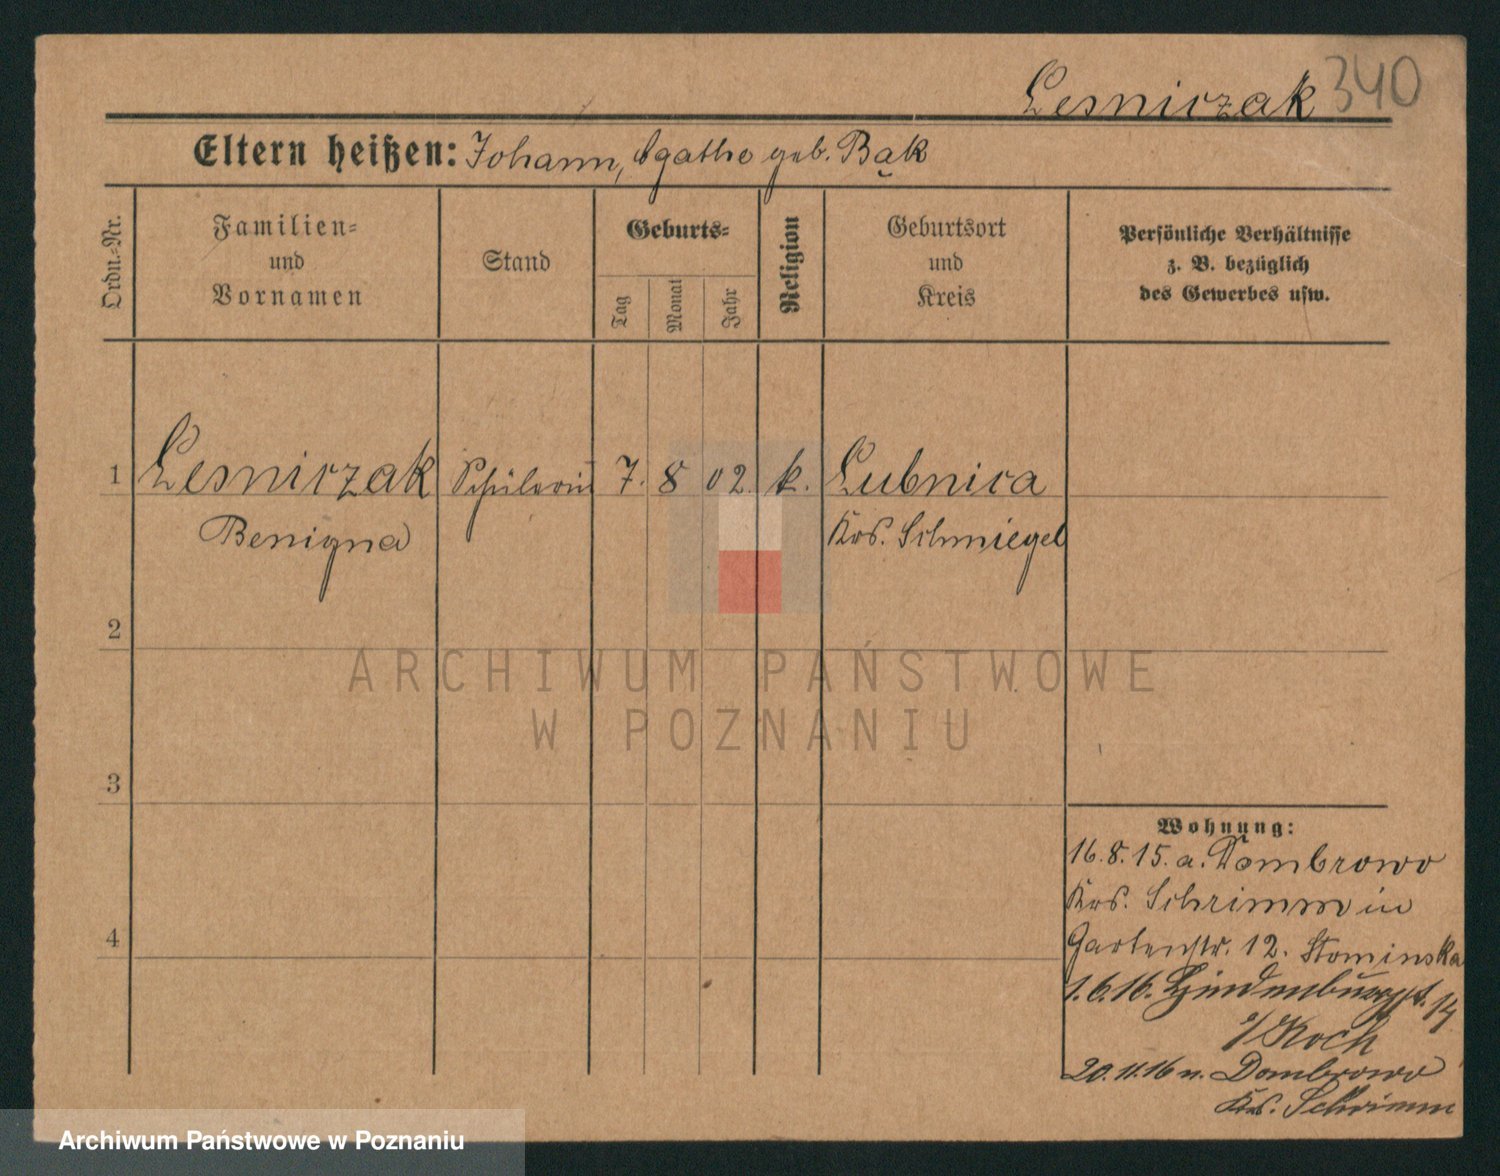 Lesniczak 340
Eltern heißen: Johann, Agathe geb. Bąk
Ordn.-Nr.
Familien-
und
Vornamen
Stand
Geburts-
Tag
Monat
Jahr
Religion
Geburtsort
und
Kreis
Persönliche Verhältnisse
z. B. bezüglich
des Gewerbes usw.
1 Lesniczak Schülerin 7. 8 02. k. Lubnica
Benigna Krs. Schmiegel
2
3
4
Wohnung:
16.8.15. a. Dombrowo
Krs. Schrimm in
Gartenstr. 12. Slominska
1.6.16. Hindenburgst. 14
b/Koch
20.11.16 n. Dombrowo
Krs. Schrimm
ARCHIWUM PAŃSTWOWE
W POZNANIU
Archiwum Państwowe w Poznaniu